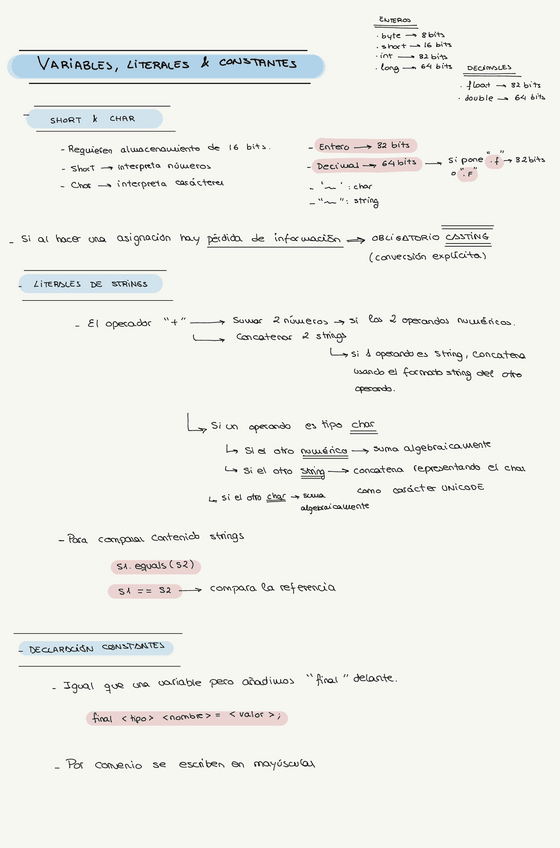 ENTEROS
· byte → 8 bits
· short → 16 bits
· int → 32 bits
· long → 64 bits
DECIMALES
· float → 32 bits
· double → 64 bits
VARIABLES, LITERALES & CONSTANTES
SHORT & CHAR
- Requieren almacenamiento de 16 bits.
- Short → interpreta números
- Char → interpreta carácteres
- Entero → 32 bits
- Decimal → 64 bits → si pone ".f" → 32 bits
o ".F"
- '~' : char
- "~" : string
- Si al hacer una asignación hay pérdida de información ⇒ OBLIGATORIO CASTING
(conversión explícita)
- LITERALES DE STRINGS
- El operador "+" → Sumar 2 números → si los 2 operandos numéricos.
↳ Concatenar 2 strings
↳ si 1 operando es string, concatena
usando el formato string del otro
operando.
↳ Si un operando es tipo char
↳ Si el otro numérico → suma algebraicamente
↳ Si el otro string → concatena representando el char
como carácter UNICODE
↳ si el otro char → suma
algebraicamente
- Para comparar contenido strings
S1.equals(S2)
S1 == S2 → compara la referencia
- DECLARACIÓN CONSTANTES
- Igual que una variable pero añadimos "final" delante.
final <tipo> <nombre> = <valor>;
- Por convenio se escriben en mayúsculas